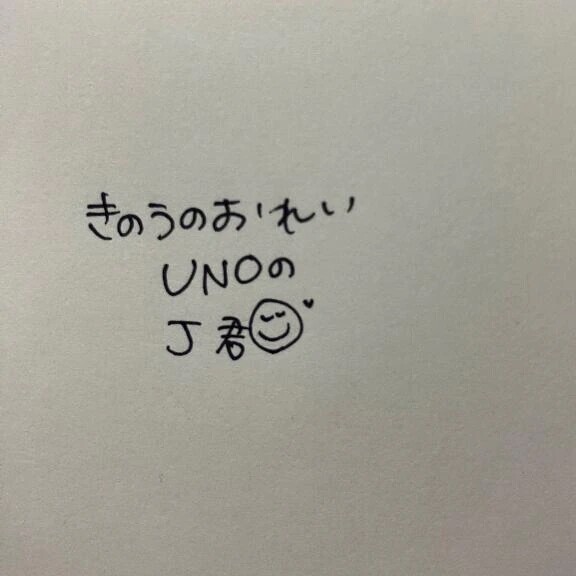 きのうのおれい
UNOの
J君